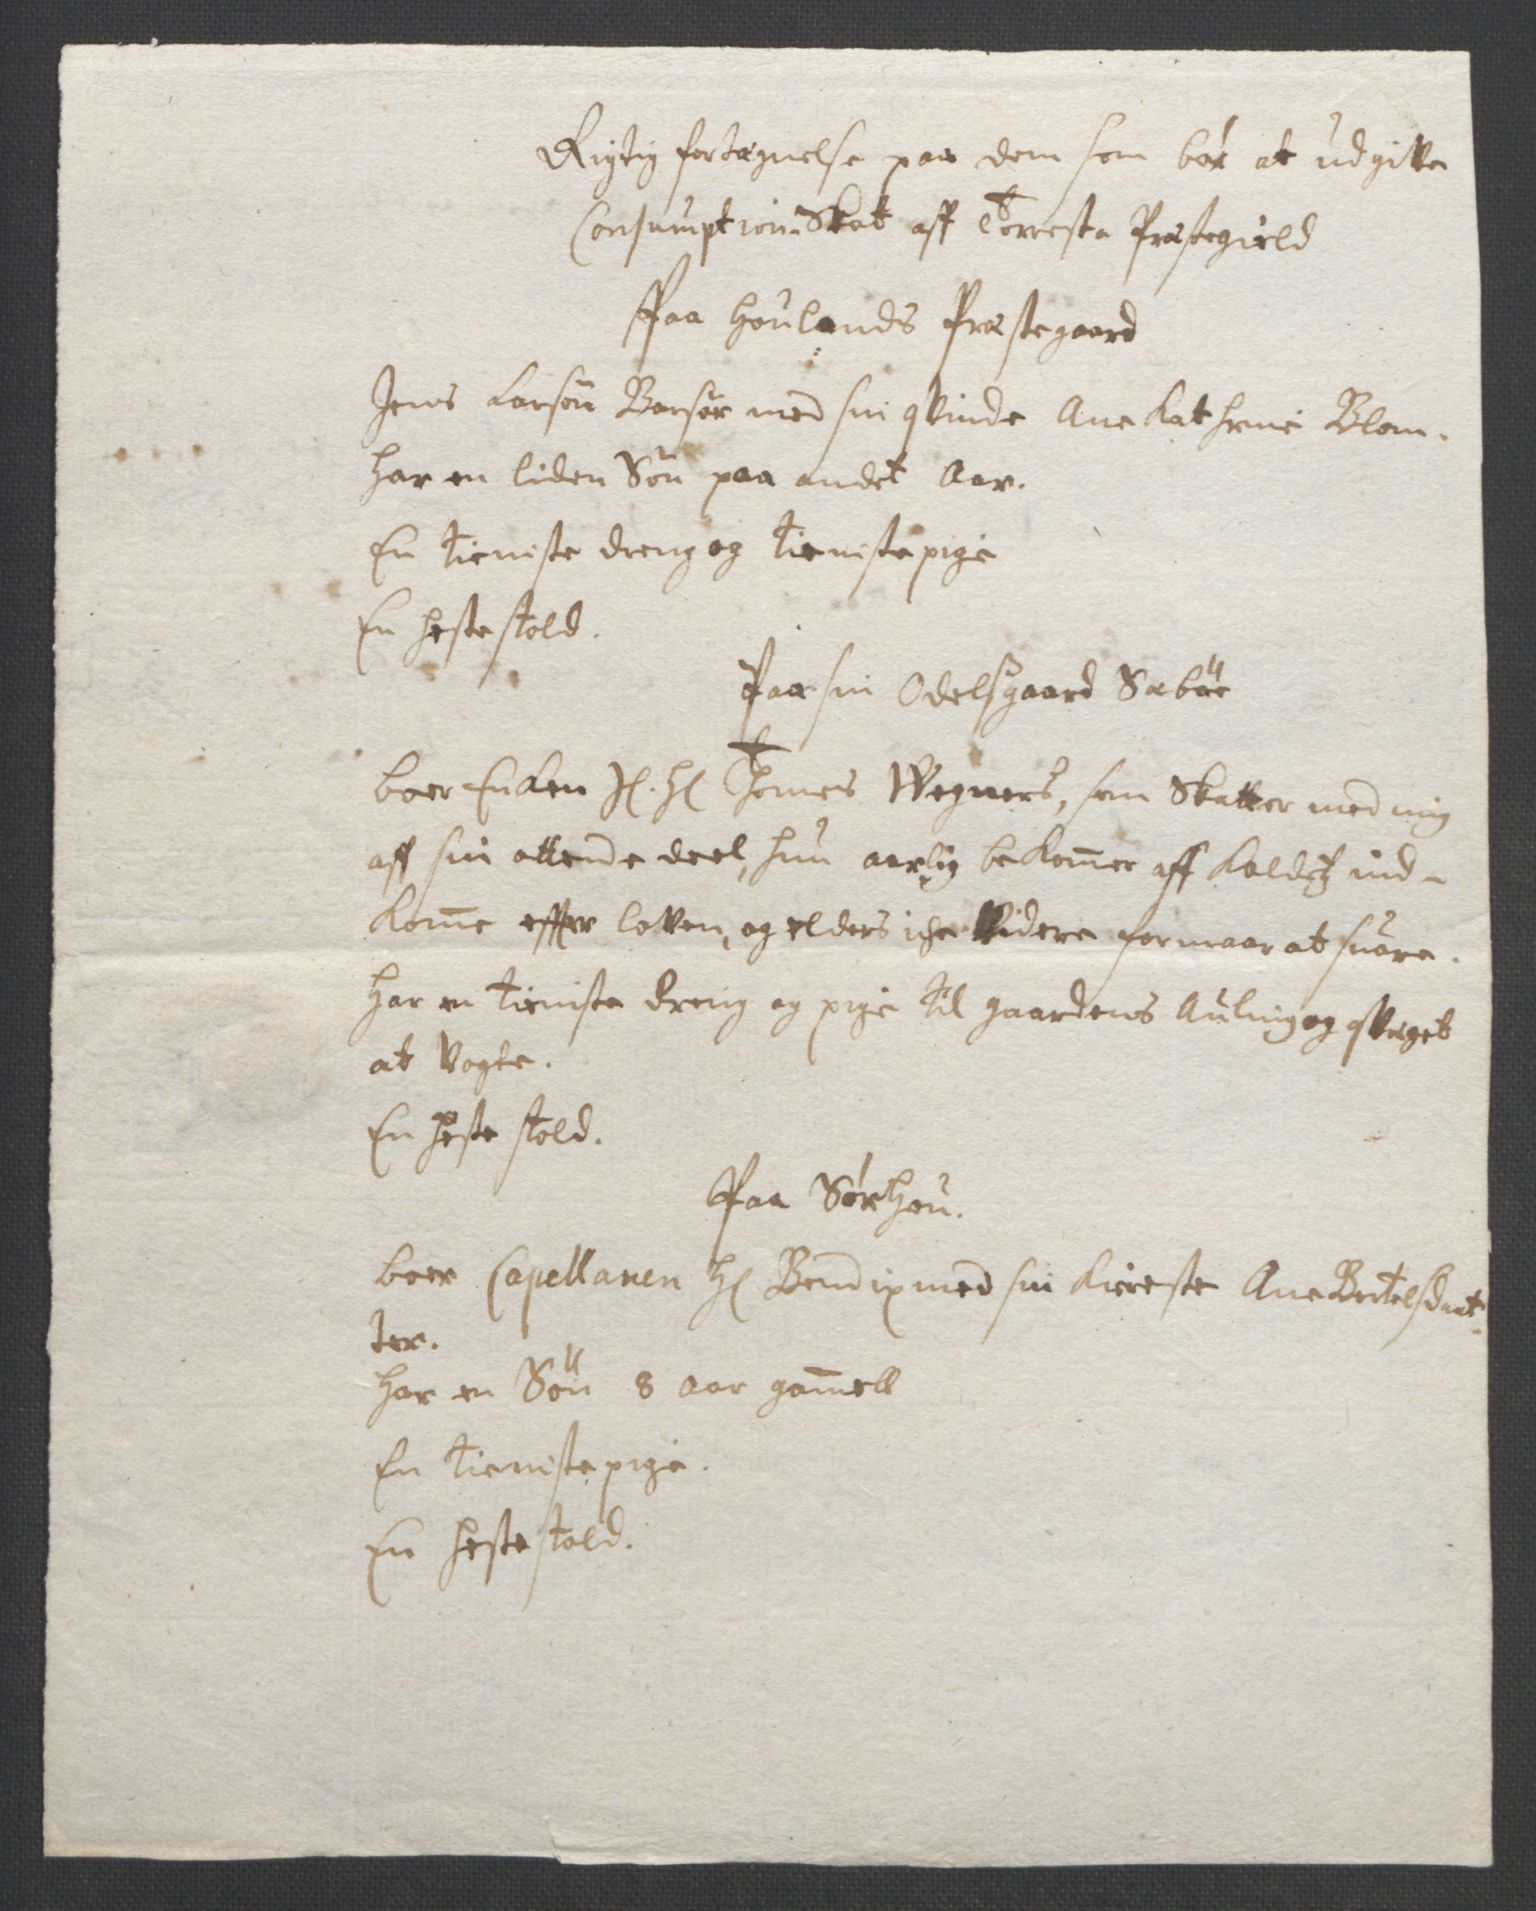 Rigtig fortægnelse paa dem som bør at udgifve
Consumption-Skat aff Torresta Præstegield
Paa Houlands Præstegaard
Jens Larsön Barsøe med sin qvinde Ane Kathrine Blom.
har en liden Sön paa andet Aar.
En tieniste dreng og tienistepige
En hestehold.
Paa sin Odelsgaard Sæbøe
boer Enken Sl. Hl Thomes Wegners, som Skatter med mig
aff sin ottende deel, hun aarlig bekommer aff Kaldetz ind-
komme effter loven, og elders iche videre formaar at suare.
har en tieniste dreng og pige til gaardens Auling og qvæget
at Vogte.
En heste hold.
Paa Sørhou.
boer Capellanen Hl Bendix med sin kiereste Ane Bertelsdaat-
ter.
har en Sön 8 aar gammell
En tienistepige.
En hestehold.